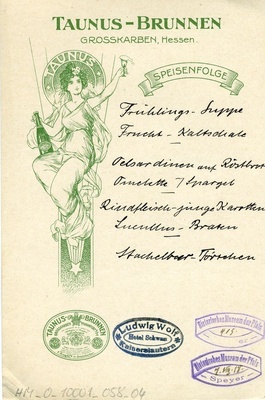 TAUNUS-BRUNNEN
GROSSKARBEN, Hessen.
TAUNUS
SPEISENFOLGE
Frühlings-Suppe
Frucht-Kaltschale
Oelsardinen auf Röstbrot
Omelette / Spargel
Rindfleisch-junge Karotten
Lucullus-Braten
Stachelbeer-Törtchen
TAUNUS-BRUNNEN
Ludwig Wolf
Hotel Schwan
Kaiserslautern
Historisches Museum der Pfalz
Historisches Museum der Pfalz
Speyer
HM_0_10001_058_04